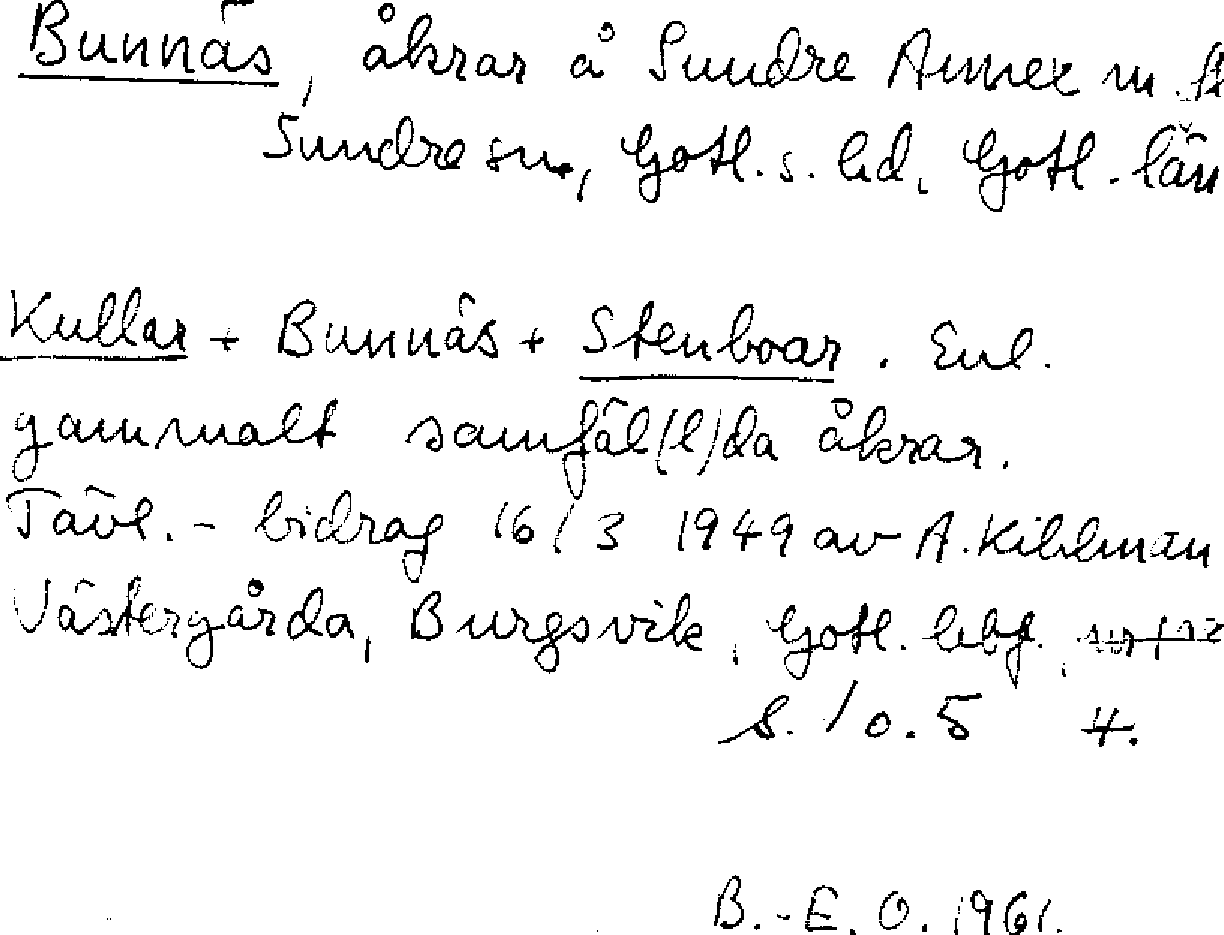 Bunnäs, åkrar å Sundre Annex m. fl
Sundre sn, Gotl. s. hd, Gotl. län
Kullar + Bunnäs + Stenboar. Enl.
gammalt samfäl(l)da åkrar.
Tävl. - bidrag 16/3 1949 av A. Kihlman
Västergårda, Burgsvik, Gotl. hbf.
s. 1 o. 5 4.
B.-E. O. 1961.